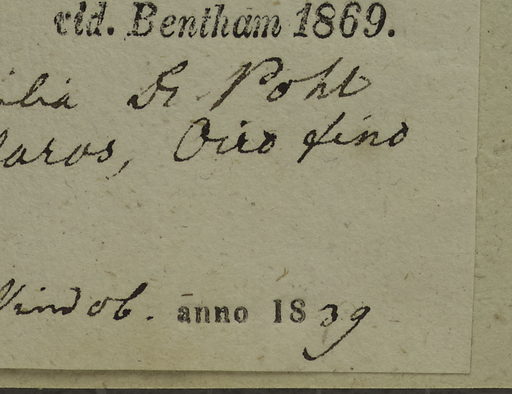 vid. Bentham 1869.
ilia Dr Pohl
laros, Oiro fino
Vindob. anno 1839